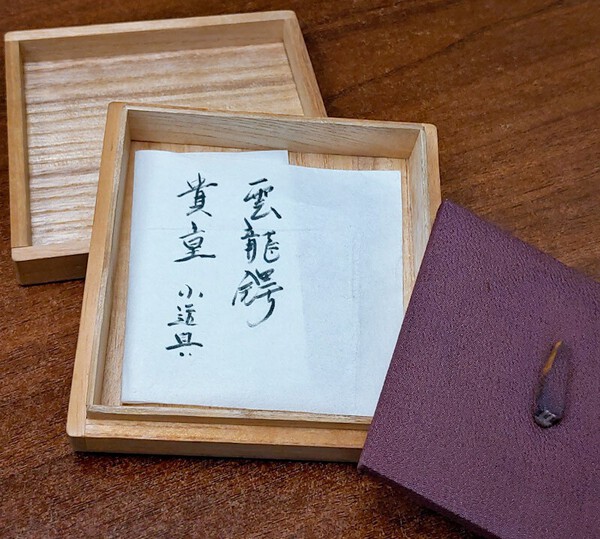 雲龍鍔
貴重 小道具